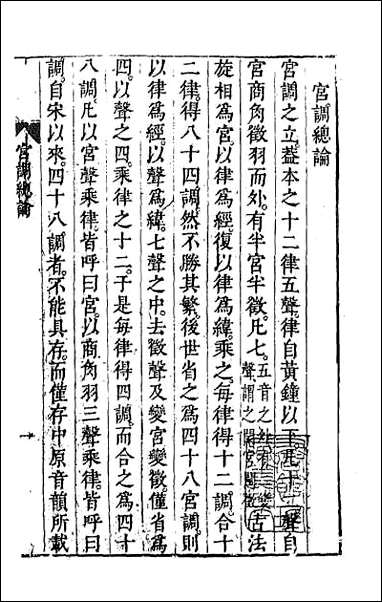 宮調總論
宮調之立蓋本之十二律五聲律自黃鐘以下凡十二聲自
宮商角徵羽而外有半宮半徵凡七五音之
聲謂之
古法
旋相爲宮以律爲經復以律爲緯乘之每律得十二調合十
二律得八十四調然不勝其繁後世省之爲四十八宮調則
以律爲經以聲爲緯七聲之中去徵聲及變宮變徵僅省爲
四以聲之四乘律之十二于是每律得四調而合之爲四十
八調凡以宮聲乘律皆呼曰宮以商角羽三聲乘律皆呼曰
調自宋以來四十八調者不能具存而僅存中原音韻所載
宮調總論